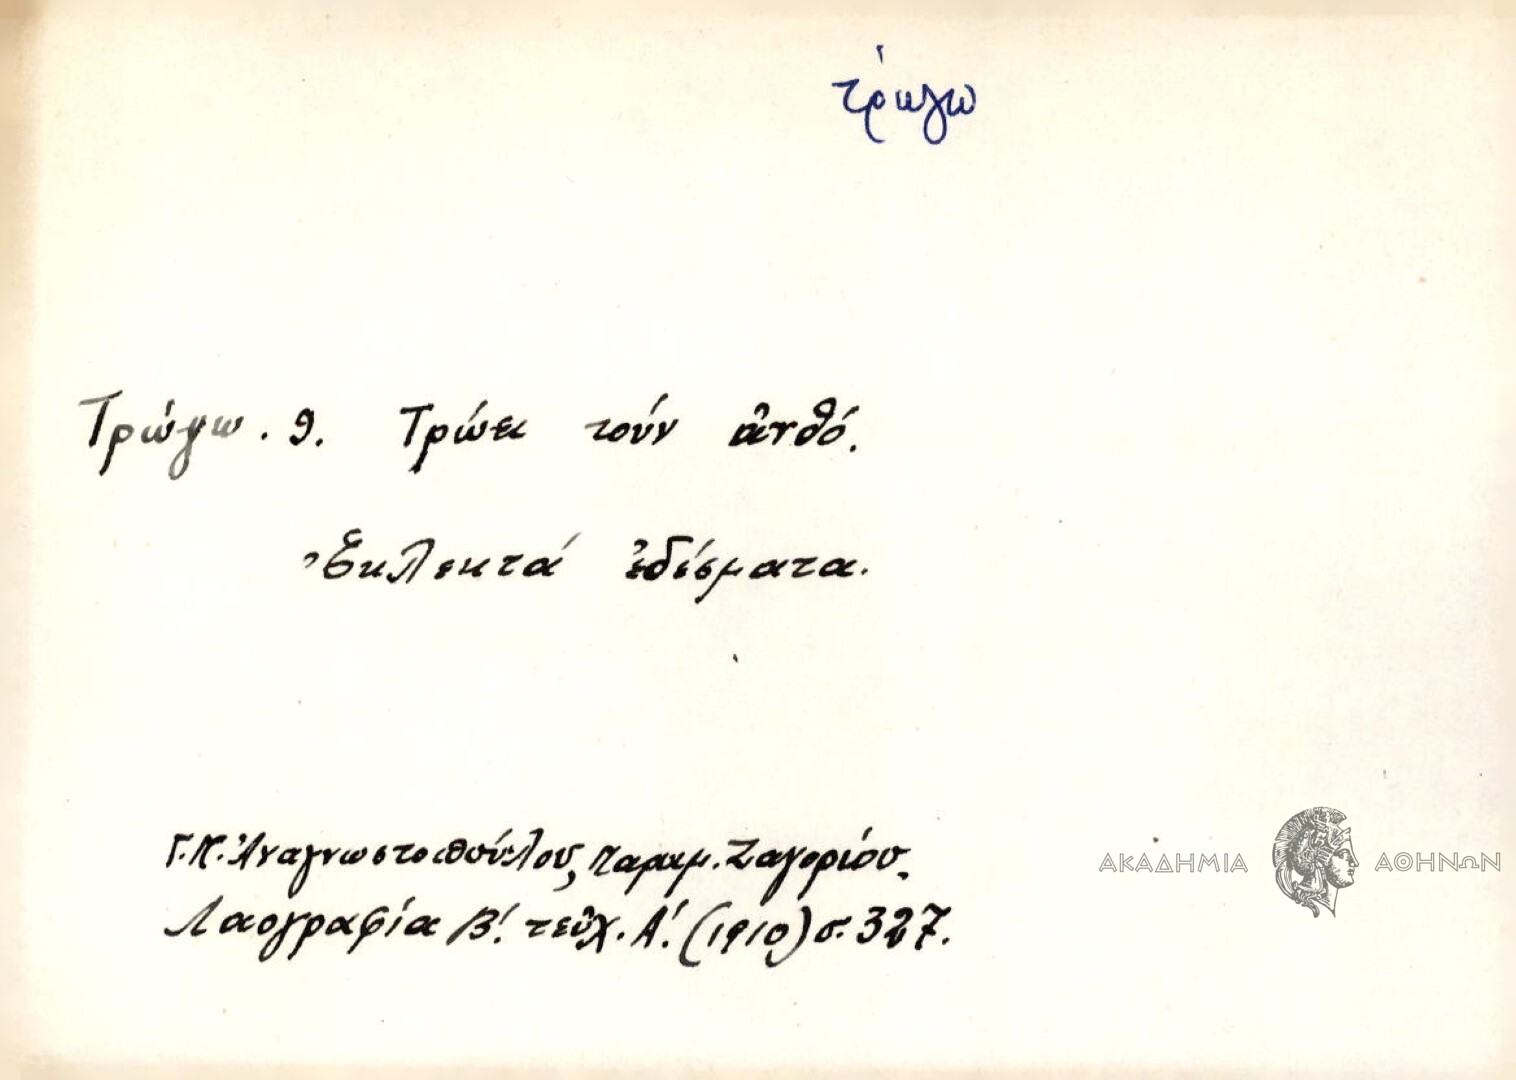 τρώγω
Τρώγω. 9. Τρώει τούν ἀνθό.
Ἐκλεκτά ἐδέσματα.
Γ.Π. Ἀναγνωστοπούλου, Παροιμ. Ζαγορίου.
Λαογραφία Β΄. τεῦχ. Α΄. (1910) σ. 327.
ΑΚΑΔΗΜΙΑ ΑΘΗΝΩΝ